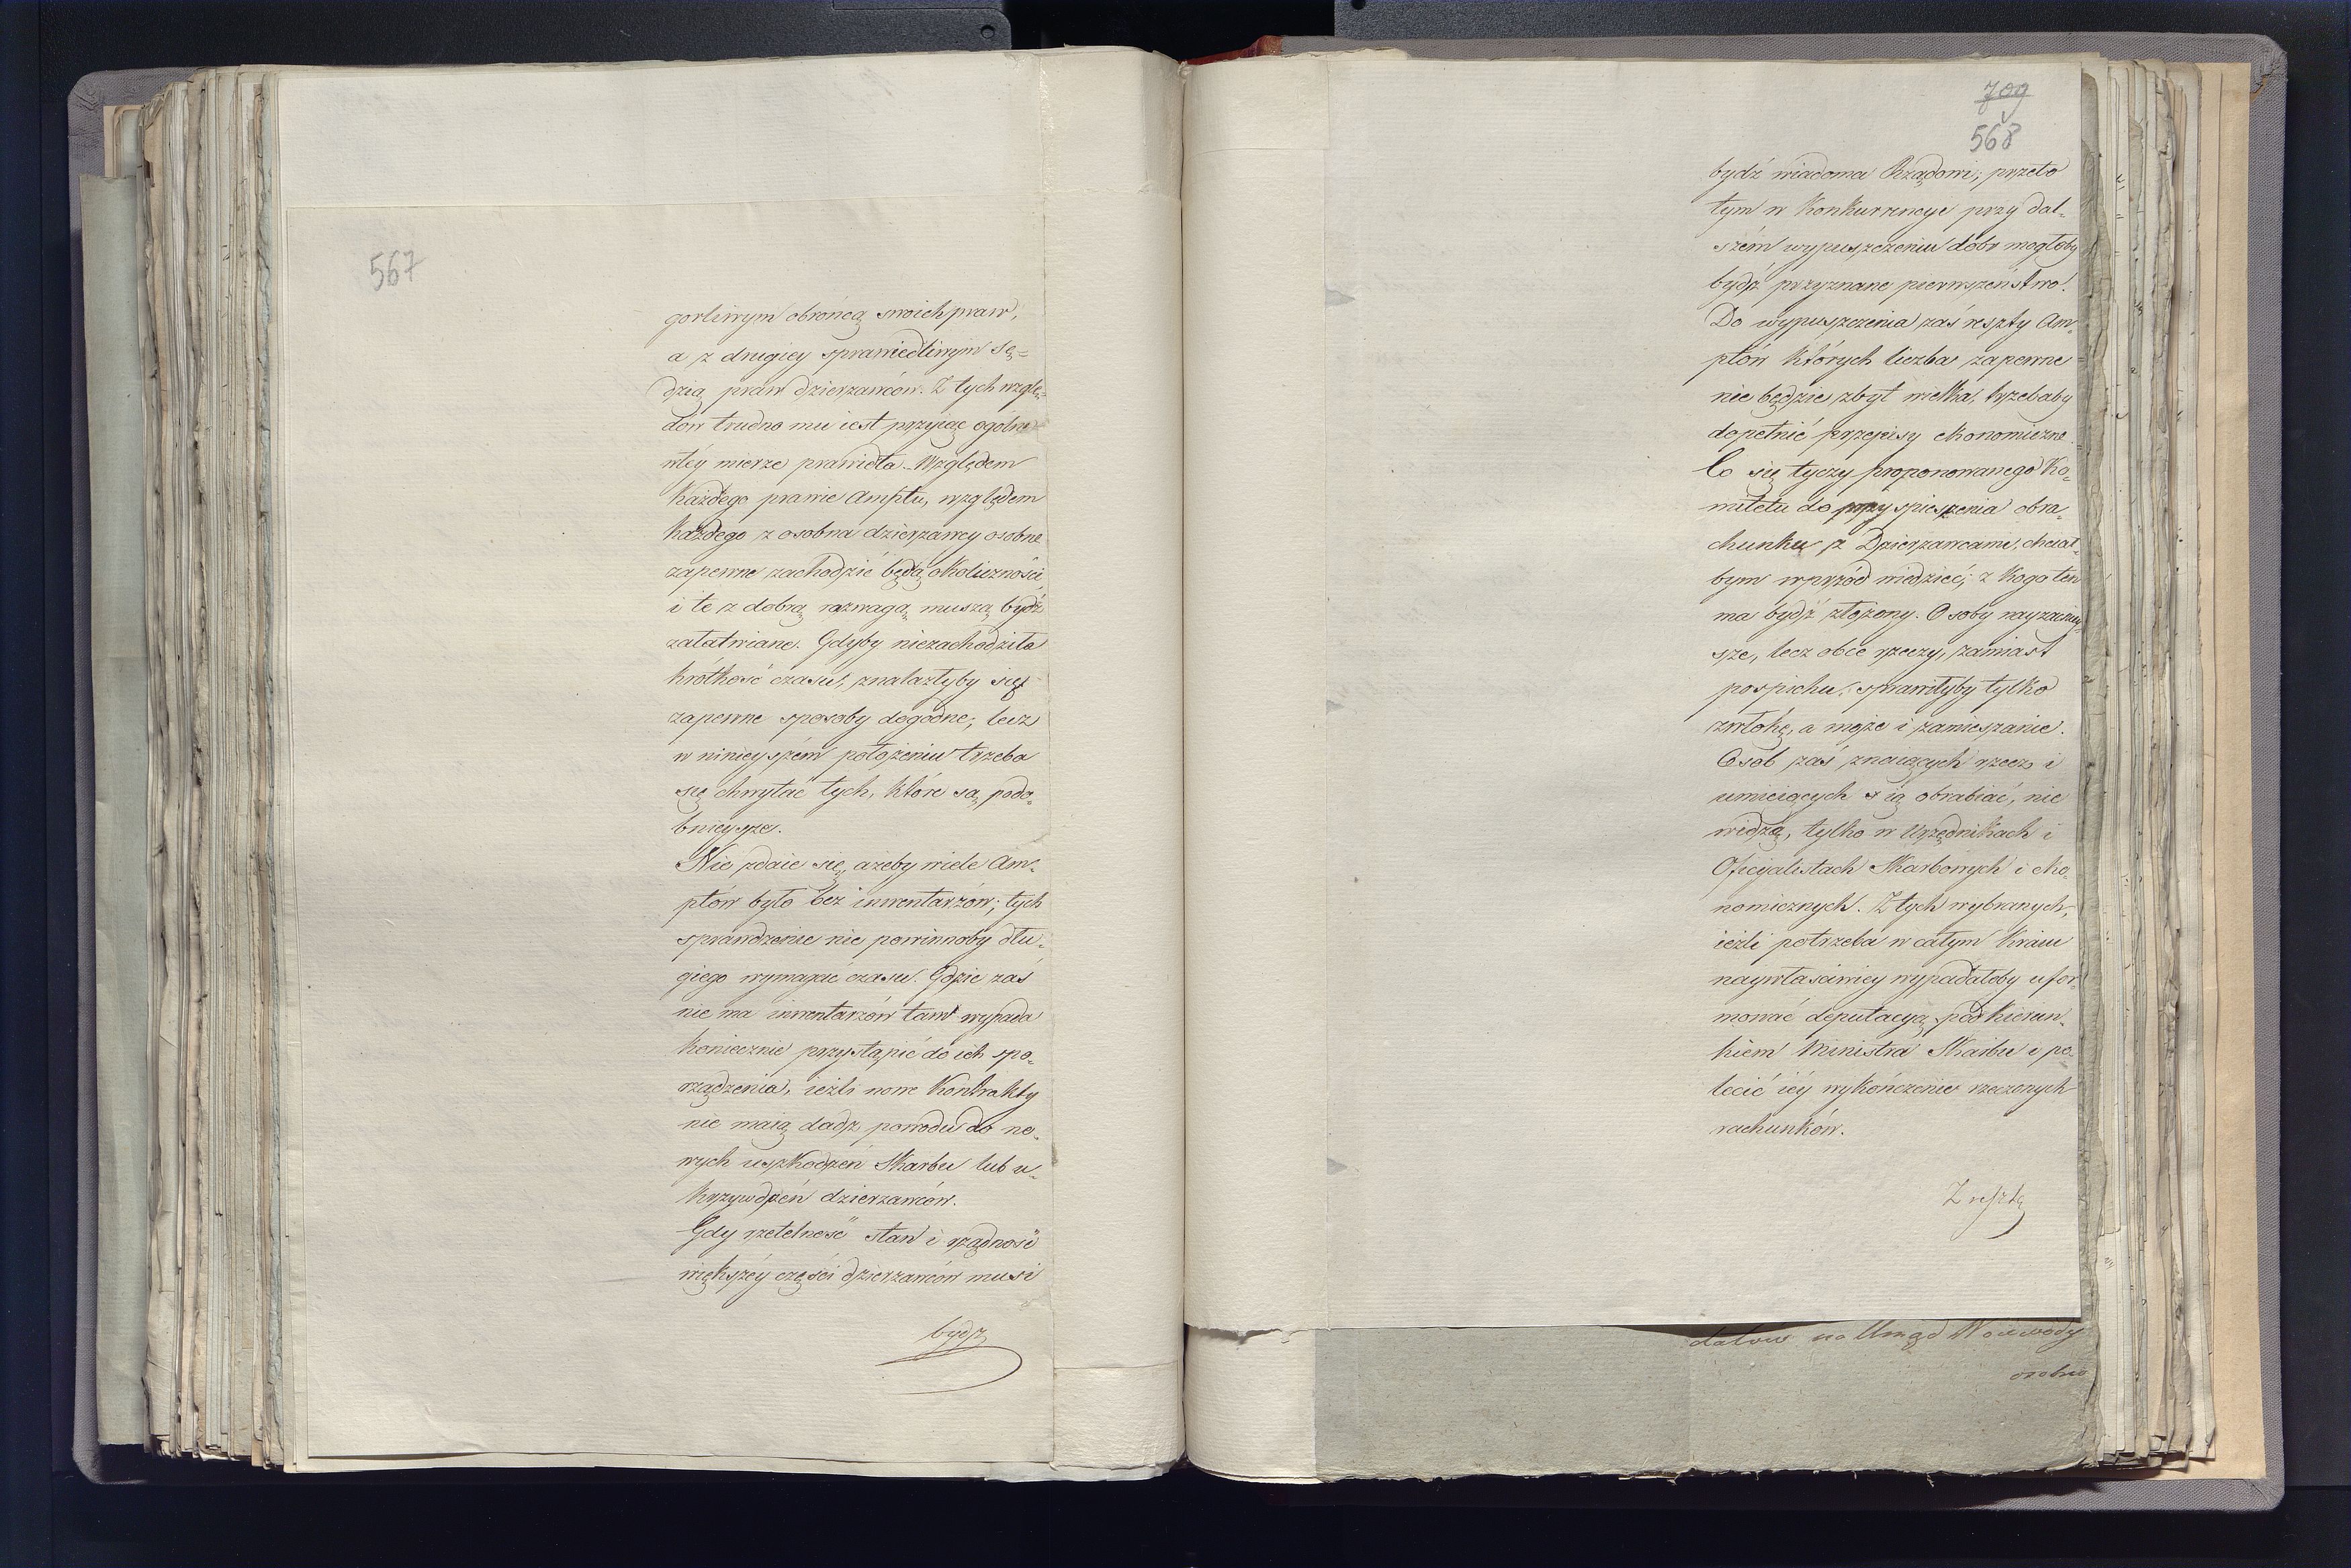 567
gorliwym obrońcą swoich praw,
a z drugiey sprawiedliwym Sę=
dzią praw dzierzawców. Z tych wzglę=
dów trudno mu iest przyiąć ogólne
w téy mierze prawidła. Względem
każdego prawie Amptu, względem
każdego z osobna dzierzawcy osobne
zapewne zachodzić będą okoliczności,
i te z dobrą rozwagą muszą bydź
załatwiane. Gdyby niezachodziła
krótkość czasu, znalazłyby się
zapewne sposoby dogodne; lecz
w ninieyszém położeniu trzeba
się chwytać tych, które są podo=
bnieysze.
Nie zdaie się, ażeby wiele Am=
ptów było bez inwentarzów; tych
sprawdzenie nie powinnoby dłu=
giego wymagać czasu. Gdzie zaś
nie ma inwentarzów tam wypada
koniecznie przystąpić do ich spo=
rządzenia, ieżli nowe Kontrakty
nie maią dadź powodu do no=
wych uszkodzeń Skarbu lub u=
krzywdzeń dzierzawców.
Gdy rzetelność stan i rządność
większéy części dzierzawców musi
bydź
709
568
bydź wiadoma Rządowi; przeto
tym w Konkurrencye przy dal=
szém wypuszczeniu dóbr mogłoby
bydź przyznane pierwszeństwo.
Do wypuszczenia zaś reszty Am=
ptów których liczba zapewne
nie będzie zbyt wielka, trzebaby
dopełnić przepisy ekonomiczne.
Co się tyczy proponowanego Ko=
mitetu do przyspieszenia obra=
chunku z Dzierzawcami, chciał=
bym wprzód wiedzieć, z kogo ten
ma bydź złożony. Osoby nayzacniey=
sze, lecz obce rzeczy, zamiast
pospiechu, sprawiłyby tylko
zwłokę, a może i zamieszanie.
Osób zaś znaiących rzecz i
umieiących ią obrabiać, nie
widzę, tylko w Urzędnikach i
Oficyalistach Skarbowych i eko=
nomicznych. Z tych wybranych,
ieżli potrzeba w całym Kraiu
naywłaściwiey wypadałoby ufor=
mować deputacyą pod kierun=
kiem Ministra Skarbu i po=
lecić iéy wykończenie rzeczonych
rachunków.
Z resztą
datów na Urząd Woiewody
osobno